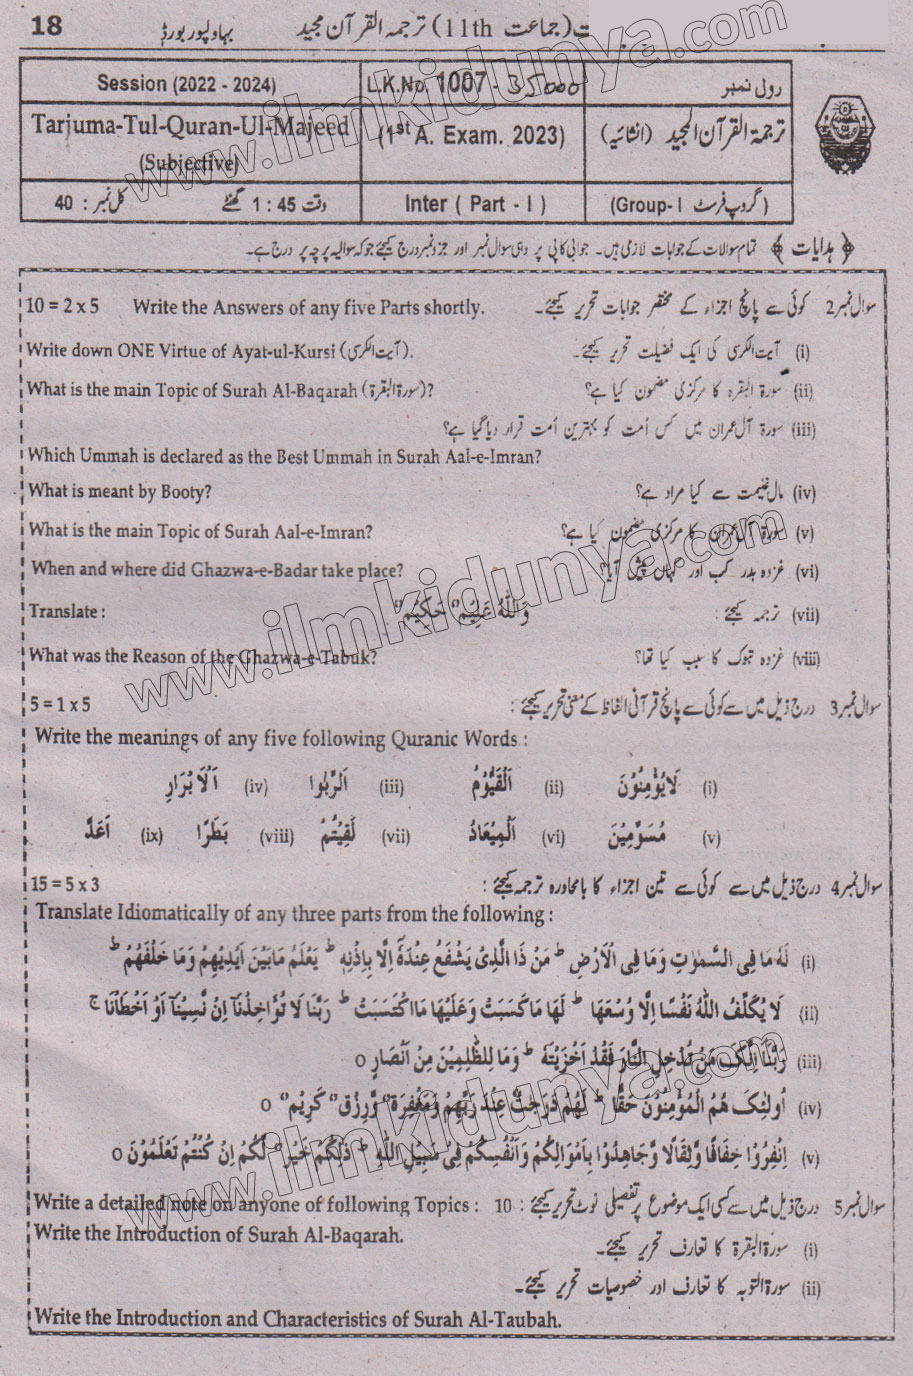 18 بہاولپور بورڈ ترجمہ القرآن مجید (11th جماعت)
Session (2022 - 2024) L.K.No. 1007 - رولی نمبر
Tarjuma-Tul-Quran-Ul-Majeed (1st A. Exam. 2023) ترجمۃ القرآن المجید (انشائیہ)
(Subjective)
کل نمبر : 40 وقت 1 : 45 گھنٹے Inter ( Part - I ) (Group- I گروپ فرسٹ)
﴿ ہدایات ﴾ تمام سوالات کے جوابات لازمی ہیں۔ جوابی کاپی پر وہی سوال نمبر اور جزو نمبر درج کیجئے جو کہ سوالیہ پرچہ پر درج ہے۔
سوال نمبر 2 کوئی سے پانچ اجزاء کے مختصر جوابات تحریر کیجئے۔ Write the Answers of any five Parts shortly. 10 = 2 x 5
(i) آیت الکرسی کی ایک فضیلت تحریر کیجئے۔ Write down ONE Virtue of Ayat-ul-Kursi (آیت الکرسی).
(ii) سورۃ البقرہ کا مرکزی مضمون کیا ہے؟ What is the main Topic of Surah Al-Baqarah (سورۃ البقرۃ)?
(iii) سورۃ آل عمران میں کس اُمت کو بہترین اُمت قرار دیا گیا ہے؟
Which Ummah is declared as the Best Ummah in Surah Aal-e-Imran?
(iv) مال غنیمت سے کیا مراد ہے؟ What is meant by Booty?
(v) سورۃ آل عمران کا مرکزی مضمون کیا ہے؟ What is the main Topic of Surah Aal-e-Imran?
(vi) غزوہ بدر کب اور کہاں پیش آیا؟ When and where did Ghazwa-e-Badar take place?
(vii) ترجمہ کیجئے : وَاللّٰهُ عَلِيْمٌ حَكِيْمٌ Translate :
(viii) غزوہ تبوک کا سبب کیا تھا؟ What was the Reason of the Ghazwa-e-Tabuk?
سوال نمبر 3 درج ذیل میں سے کوئی سے پانچ قرآنی الفاظ کے معنی تحریر کیجئے : 5 = 1 x 5
Write the meanings of any five following Quranic Words :
(i) لَا يُؤْمِنُوْنَ (ii) اَلْقَيُّوْمُ (iii) اَلرِّبٰوا (iv) اَلْاَبْرَارِ
(v) مُسَوِّمِيْنَ (vi) اَلْمِيْعَادُ (vii) لَقِيْتُمْ (viii) بَطَرًا (ix) اَعَدَّ
سوال نمبر 4 درج ذیل میں سے کوئی سے تین اجزاء کا بامحاورہ ترجمہ کیجئے : 15 = 5 x 3
Translate Idiomatically of any three parts from the following :
(i) لَهٗ مَا فِى السَّمٰوٰتِ وَمَا فِى الْاَرْضِ ؕ مَنْ ذَا الَّذِىْ يَشْفَعُ عِنْدَهٗۤ اِلَّا بِاِذْنِهٖ ؕ يَعْلَمُ مَا بَيْنَ اَيْدِيْهِمْ وَمَا خَلْفَهُمْ ؕ
(ii) لَا يُكَلِّفُ اللّٰهُ نَفْسًا اِلَّا وُسْعَهَا ؕ لَهَا مَا كَسَبَتْ وَعَلَيْهَا مَا اكْتَسَبَتْ ؕ رَبَّنَا لَا تُؤَاخِذْنَاۤ اِنْ نَّسِيْنَاۤ اَوْ اَخْطَاْنَا ۚ
(iii) رَبَّنَاۤ اِنَّكَ مَنْ تُدْخِلِ النَّارَ فَقَدْ اَخْزَيْتَهٗ ؕ وَمَا لِلظّٰلِمِيْنَ مِنْ اَنْصَارٍ o
(iv) اُولٰٓئِكَ هُمُ الْمُؤْمِنُوْنَ حَقًّا ؕ لَهُمْ دَرَجٰتٌ عِنْدَ رَبِّهِمْ وَمَغْفِرَةٌ وَّرِزْقٌ كَرِيْمٌ o
(v) اِنْفِرُوْا خِفَافًا وَّثِقَالًا وَّجَاهِدُوْا بِاَمْوَالِكُمْ وَاَنْفُسِكُمْ فِىْ سَبِيْلِ اللّٰهِ ؕ ذٰلِكُمْ خَيْرٌ لَّكُمْ اِنْ كُنْتُمْ تَعْلَمُوْنَ o
سوال نمبر 5 درج ذیل میں سے کسی ایک موضوع پر تفصیلی نوٹ تحریر کیجئے : 10 Write a detailed note on anyone of following Topics :
(i) سورۃ البقرۃ کا تعارف تحریر کیجئے۔ Write the Introduction of Surah Al-Baqarah.
(ii) سورۃ التوبہ کا تعارف اور خصوصیات تحریر کیجئے۔
Write the Introduction and Characteristics of Surah Al-Taubah.
www.ilmkidunya.com
www.ilmkidunya.com
www.ilmkidunya.com